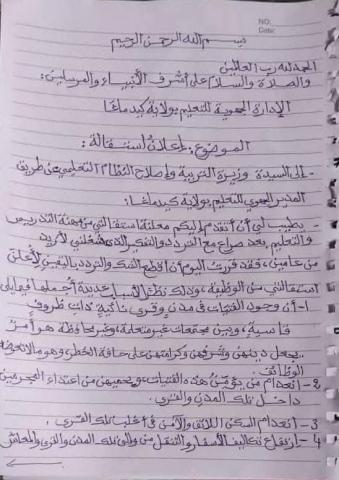 NO:
Date:
بسم الله الرحمن الرحيم
الحمد لله رب العالمين
والصلاة والسلام على أشرف الأنبياء والمرسلين:
الإدارة الجهوية للتعليم بولاية كيدماغا
الموضوع: إعلان استقالة:
- إلى السيدة وزيرة التربية وإصلاح النظام التعليمي عن طريق
المدير الجهوي للتعليم بولاية كيدماغا:
- يطيب لي أن أتقدم إليكم معلنة استقالتي من مهنة التدريس
والتعليم بعد صراع مع التردد والتفكير الذي شغلني لأزيد
من عامين، فقد قررت اليوم أن أقطع الشك والتردد باليقين لأعلن
استقالتي من الوظيفة، وذلك نظرا لأسباب عديدة أجملها فيما يلي
1- أن وجود الفتيات في مدن وقرى نائية ذات ظروف
قاسية، وبين مجتمعات غير متعلمة، وغير محافظة هو أمر
يجعل دينهن وشرفهن وكرامتهن على حافة الخطر، وهو ما لا تعوضه
الوظائف.
2- انعدام من يؤمن هذه الفتيات ويحميهن من اعتداء المجرمين
داخل تلك المدن والقرى.
3- انعدام السكن اللائق والآمن في أغلب تلك القرى،
4- ارتفاع تكاليف الأسفار والتنقل من وإلى تلك المدن والقرى والمعاش